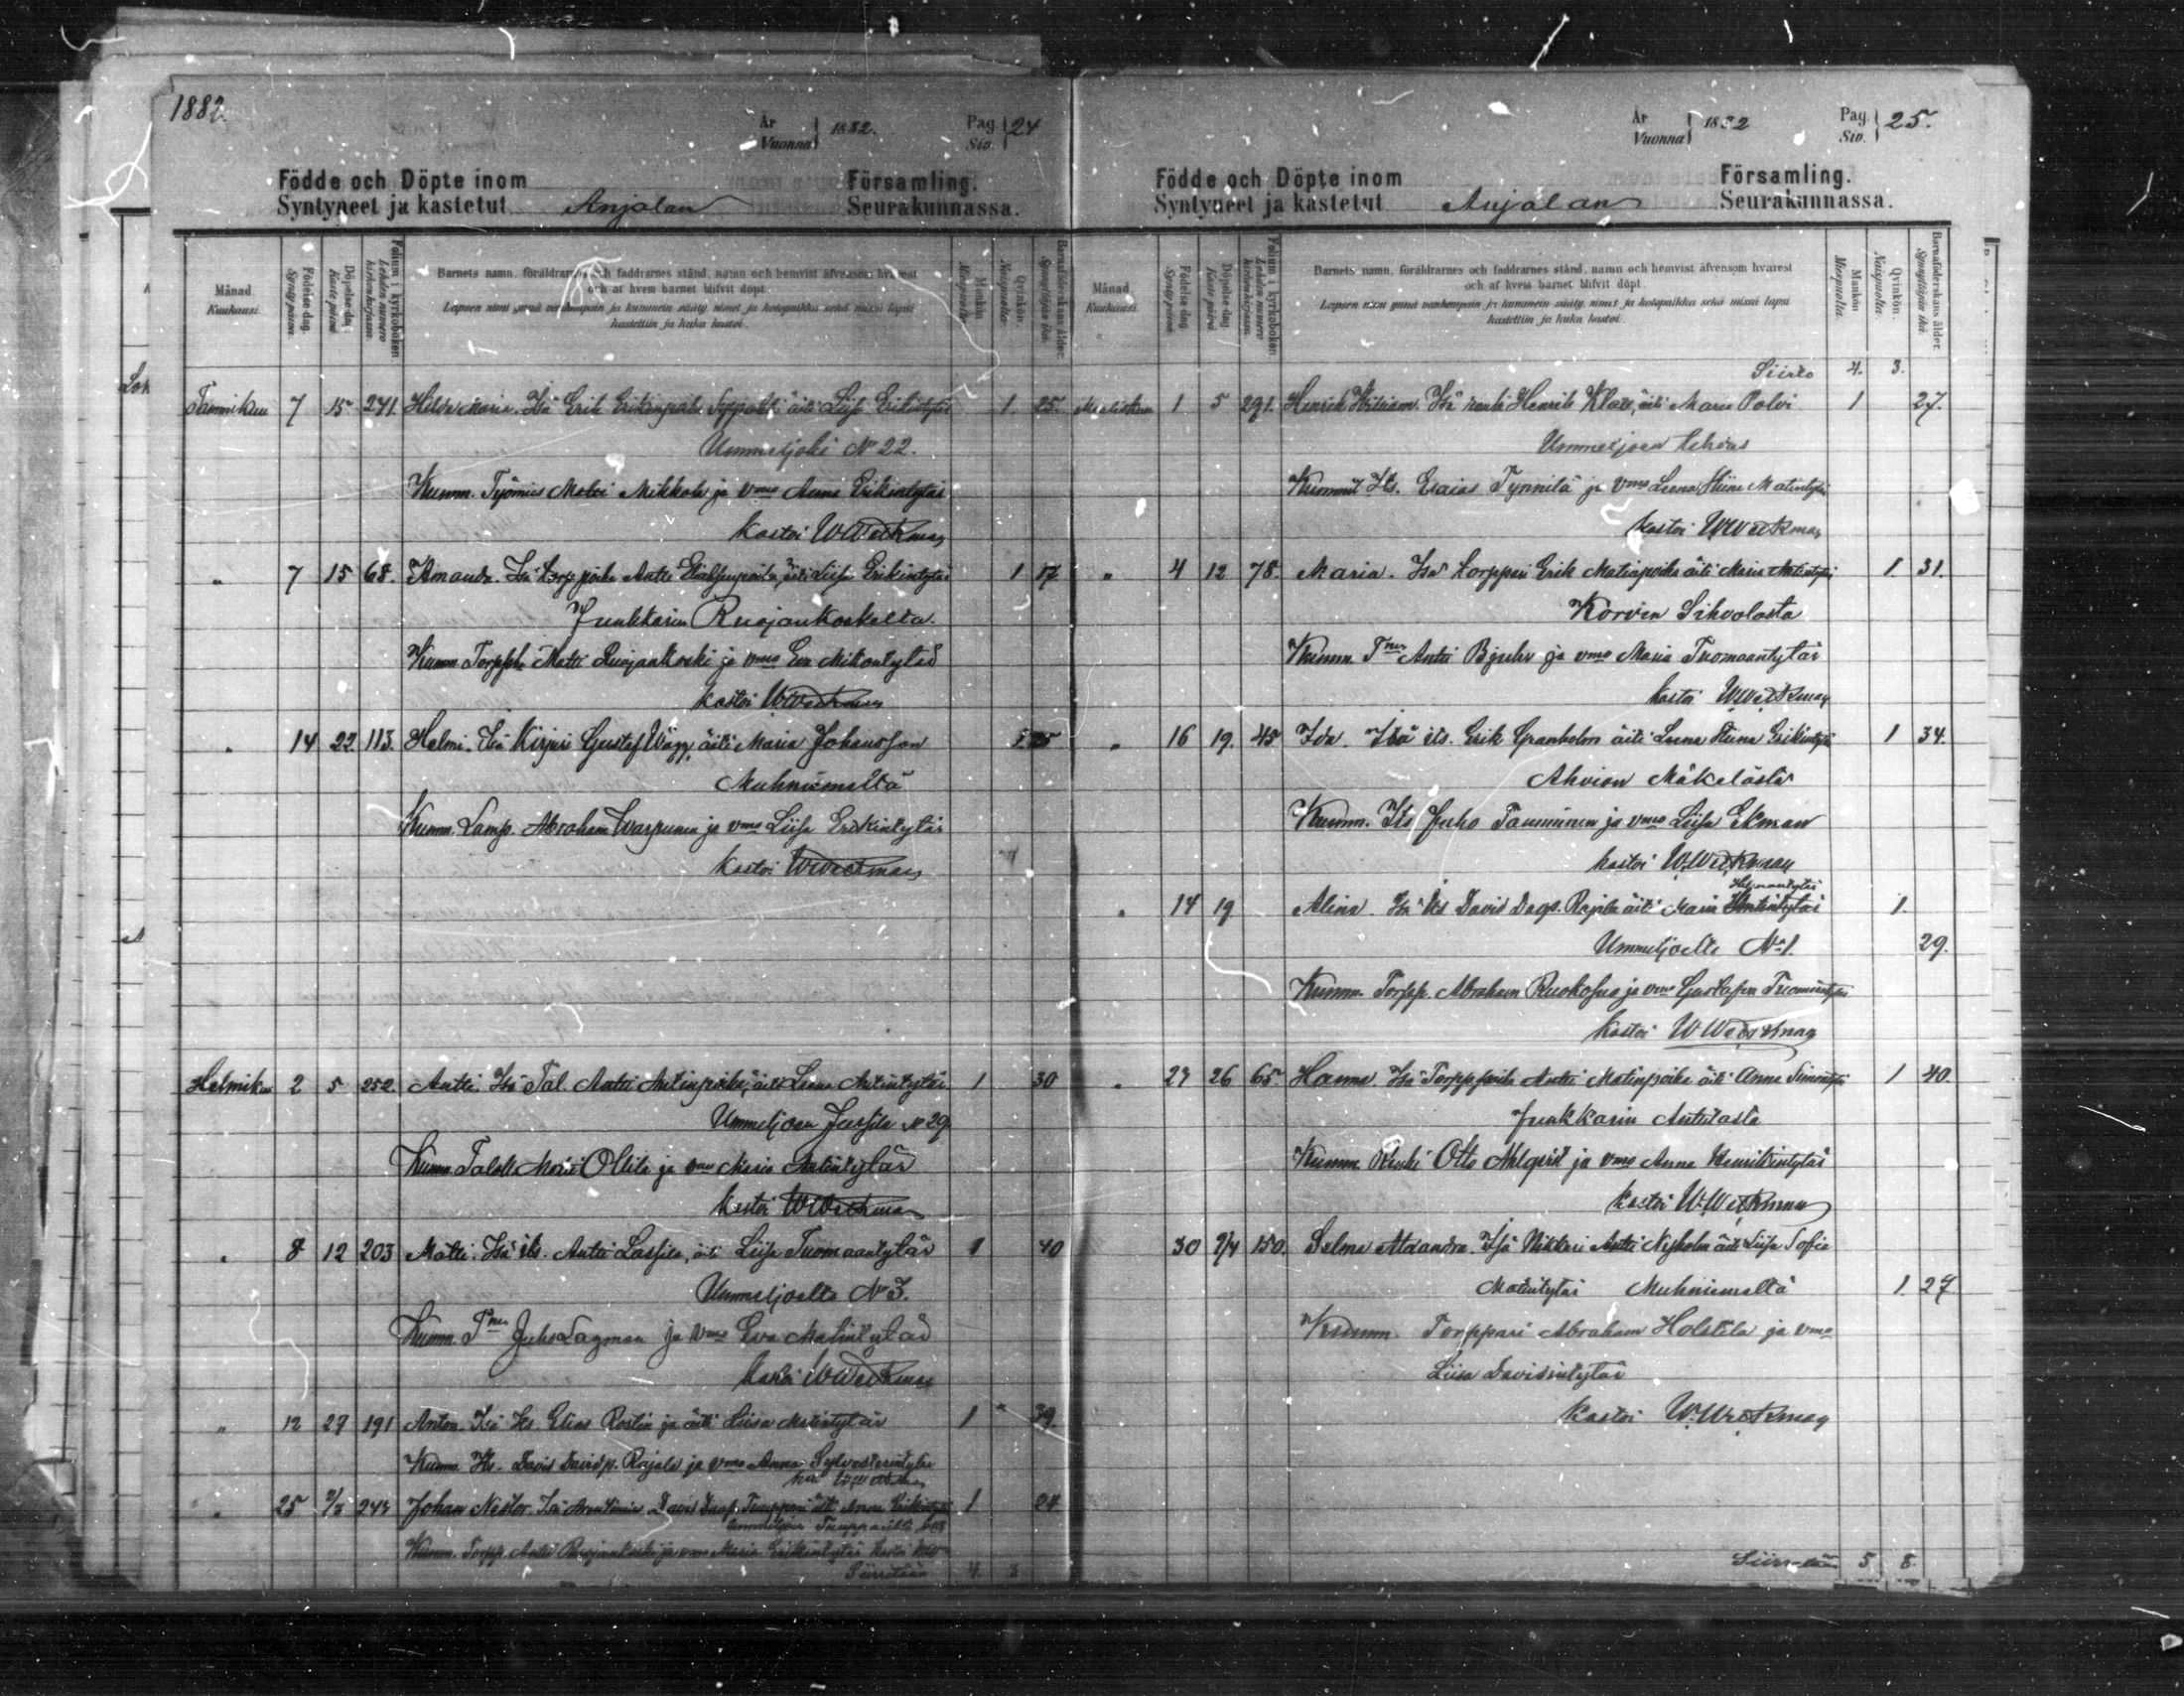 1882.
År
Vuonna 1882.
Pag.
Siv. 24
Födde och Döpte inom Församling.
Syntyneet ja kastetut Anjalan Seurakunnassa.
Månad.
Kuukausi.
Födelse-dag.
Syntypäivä.
Döpelse-dag.
Kaste-päivä.
Folium i kyrkoboken.
Lehden numero kirkonkirjassa.
Barnets namn, föräldrarnes och faddrarnes stånd, namn och hemvist äfvensom hvarest
och af hvem barnet blifvit döpt.
Lapsen nimi ynnä vanhempain ja kummein sääty, nimet ja kotopaikka sekä missä lapsi
kastettiin ja kuka kastoi.
Mankön.
Miespuolia.
Qvinkön.
Naispuolia.
Barnaföderskans ålder.
Synnyttäjän ikä.
Tammikuu 7 15 241. Hilda Maria. Isä Erik Erikinpoika Seppälä äiti Liisa Erikintytär 1 25.
Ummeljoki No 22.
Kumm. Työmies Matti Mikkola ja vmo Anna Erikintytär
kastoi W Weckman
" 7 15 68. Amanda. Isä torp. poika Antti äiti Liisa Erikintytär 1 17
Junkkarin Ruojankoskelta.
Kumm. Torpp. Matti Ruojankoski ja vmo Eva Mikontytär
kastoi W Weckman
" 14 22 113. Helmi. Isä Kirjuri Gustaf Wägg, äiti Maria Johansson 1 25
Muhniemeltä
Kumm. Lamp. Abraham Warpunen ja vmo Liisa Erikintytär
kastoi W Weckman
Helmikuu 2 5 252. Antti. Isä Tal. Antti Antinpoika, äiti Leena Antintytär 1 30
Ummeljoen Jussila No 29.
Kumm. Talok. Matti Ollila ja vmo Maria Antintytär
kastoi W Weckman
" 8 12 203 Matti. Isä its. Antti Lassila, äiti Liisa Tuomaantytär 1 40
Ummeljoelta No 3.
Kumm. Juho Lagman ja vmo Eva Matintytär
kastoi W Weckman
" 12 27 191 Anton. Isä Its. Elias Rostin ja äiti Liisa Matintytär 1 39.
Kumm. Its. David Davidp. Rajala ja vmo Anna Sylvesterintytär
kast. W Weckman
" 25 248 Johan Nestor. Isä David Tuuppuri äiti Anna Erikintytär 1 24
Ummeljoen
Kumm. Torpp. Antti Ruojankoski ja vmo Maria Erikintytär kastoi WW
Siirretään 4. 3
År
Vuonna 1882
Pag.
Siv. 25.
Födde och Döpte inom Församling.
Syntyneet ja kastetut Anjalan Seurakunnassa.
Månad.
Kuukausi.
Födelse-dag.
Syntypäivä.
Döpelse-dag.
Kaste-päivä.
Folium i kyrkoboken.
Lehden numero kirkonkirjassa.
Barnets namn, föräldrarnes och faddrarnes stånd, namn och hemvist äfvensom hvarest
och af hvem barnet blifvit döpt.
Lapsen nimi ynnä vanhempain ja kummein sääty, nimet ja kotopaikka sekä missä lapsi
kastettiin ja kuka kastoi.
Mankön.
Miespuolia.
Qvinkön.
Naispuolia.
Barnaföderskans ålder.
Synnyttäjän ikä.
Siirto 4. 3.
Maaliskuu 1 5 291. Henrik William. Isä renki Henrik Klase, äiti Maria Polvi 1 27.
Ummeljoen tehdas
Kummit Its. Esaias Tynnilä ja vmo Leena Stiina Matintytär
kastoi W Weckman
" 4 12 78. Maria. Isä torppari Erik Matinpoika äiti Maria Antintytär 1. 31.
Korvan Sihvolasta
Kumm. Antti ja vmo Maria Tuomaantytär
kastoi W Weckman
" 16 19 45 Ida. Isä its. Erik Granholm äiti Leena Stiina Erikintytär 1 34.
Ahvion Mäkelästä
Kumm. Its Juho Tamminen ja vmo Liisa Ekman
kastoi W Weckman
" 14 19 Alina. Isä Its David Davp. Rajala äiti Maria Hermantytär 1.
Ummeljoelta No 1. 29.
Kumm. Torpp. Abraham Ruokosuo ja vmo Gustafva Tuomaantytär
kastoi W Weckman
" 23 26 65. Hanna. Isä Torpp. poika Antti Matinpoika äiti Anna Simontytär 1 40.
Junkkarin Anttilasta
Kumm. Renki Otto Ahlqvist ja vmo Anna Henrikintytär
kastoi W Weckman
30 2/4 150. Selma Alexandra. Isä Nikkari Antti Nyholm äiti Liisa Sofia
Matintytär Muhniemeltä 1. 27
Kumm. Torppari Abraham Holttila ja vmo
Liisa Davidintytär
kastoi W. Weckman
Siirretään 5 8.